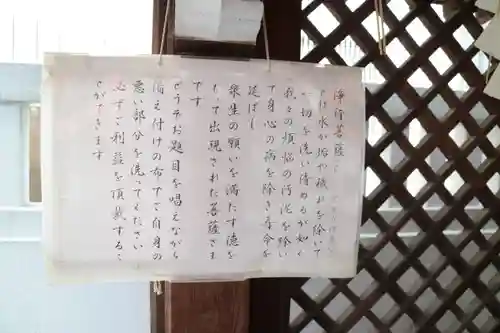 浄行菩薩
は水が垢や穢れを除いて
一切を洗い清めるが如く
我々の煩悩の汚泥を除い
て身心の病を除き寿命を
延ばし
衆生の願いを満たす徳を
もって出現された菩薩さま
です
どうぞお題目を唱えながら
備え付けの布でご自身の
悪い部分を洗ってください
必ずご利益を頂戴するこ
とができます